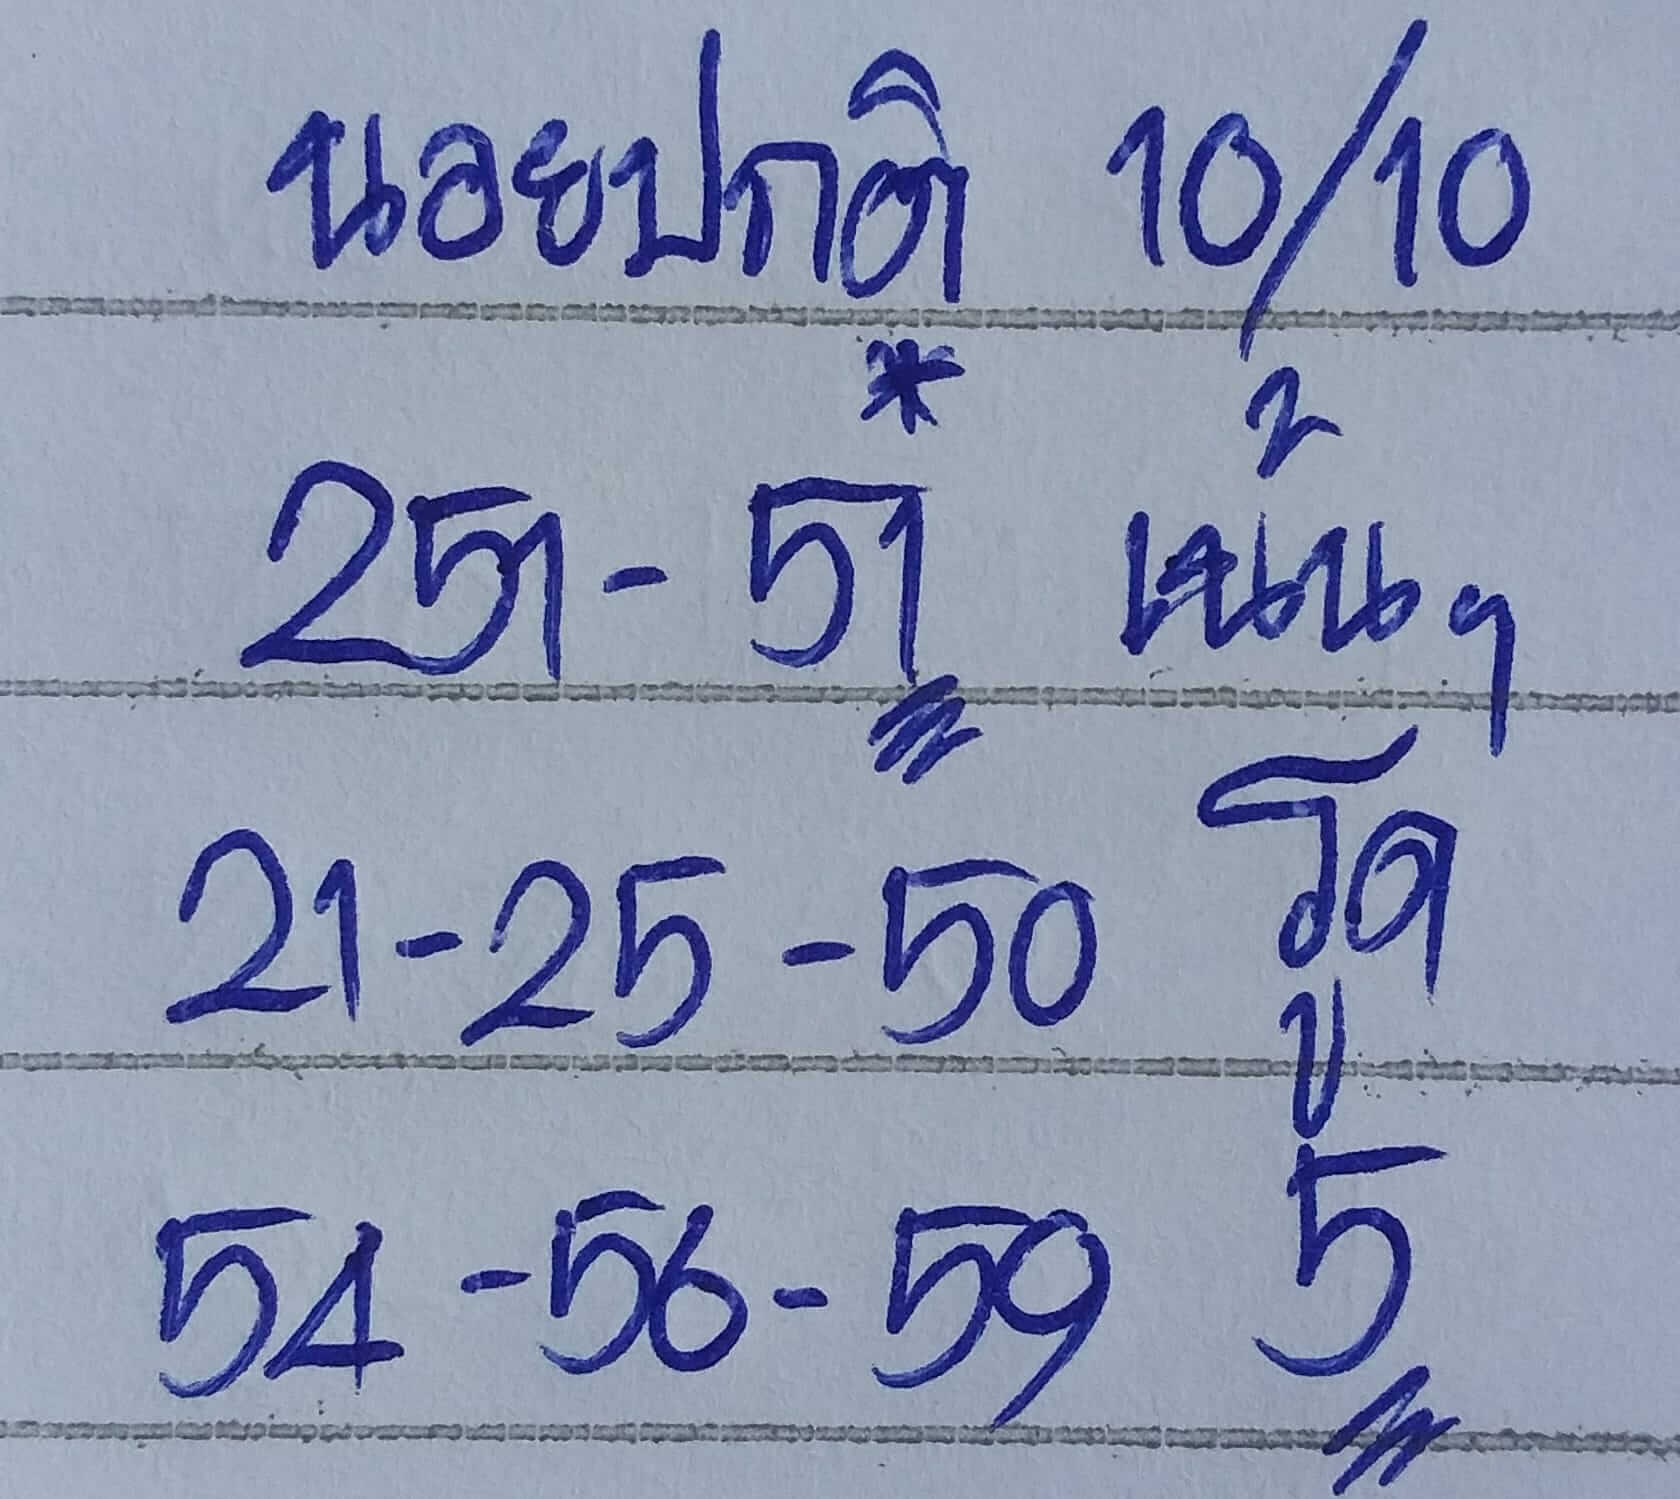 นอยปกติ 10/10
*
251 - 51 เน้นๆ
21 - 25 - 50 รูด
54 - 56 - 59 5